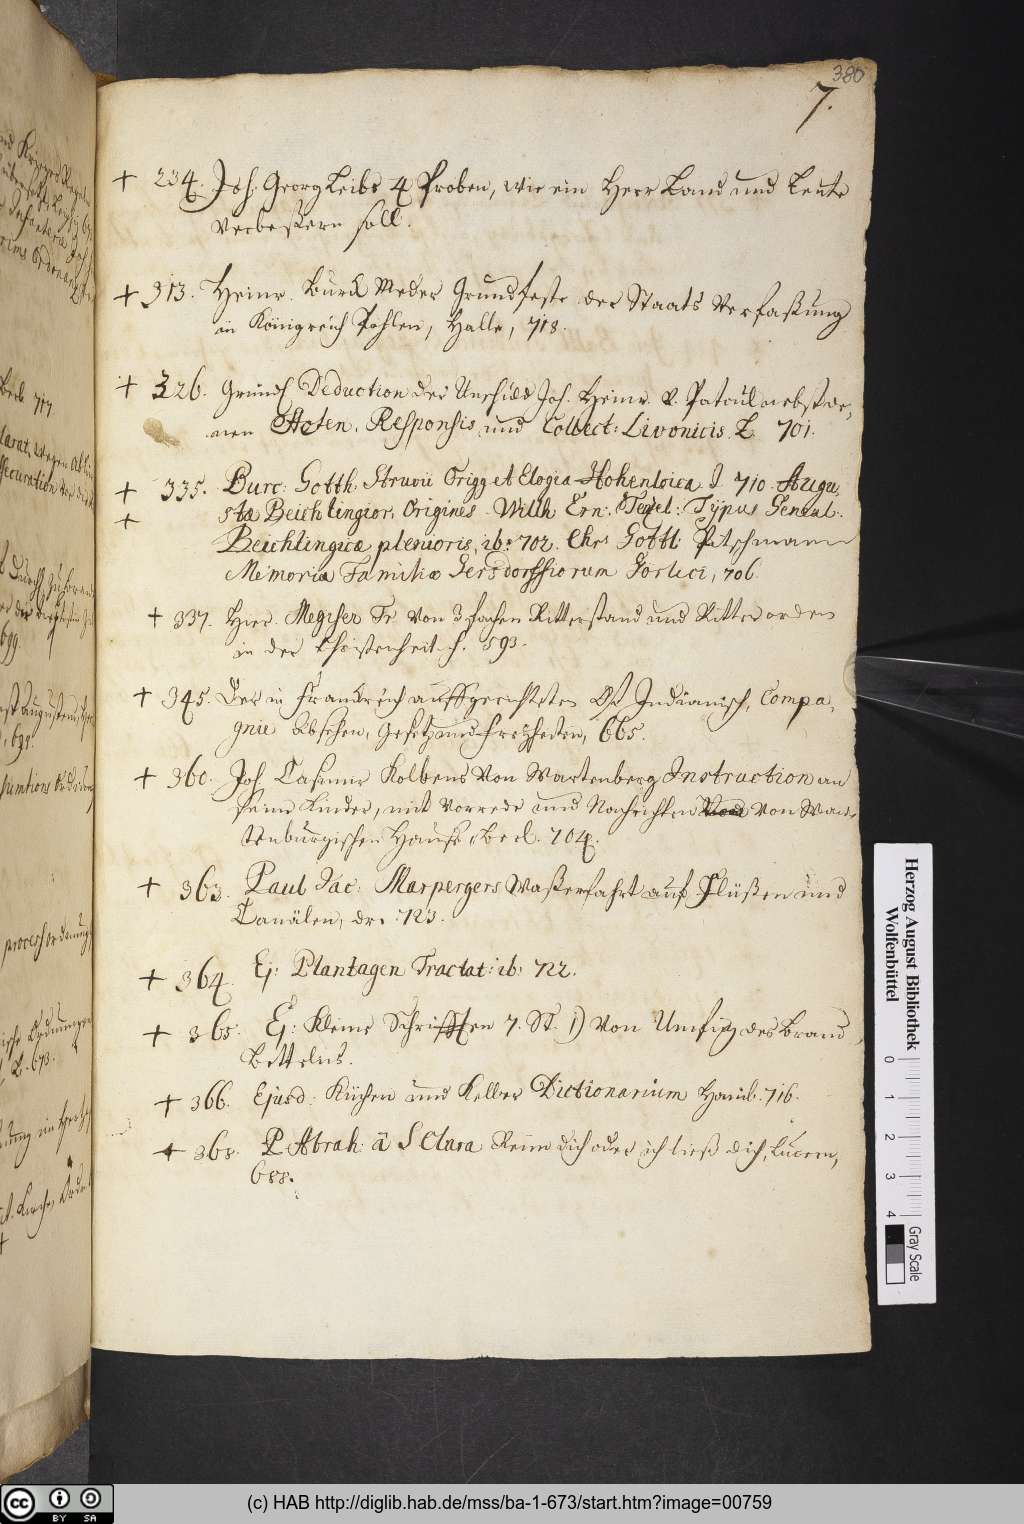 380
7.
+ 234. Joh. Georg Leibs 4 Proben, wie ein Herr Land und Leute
verbeßern soll.
+ 313. Heinr. Burch Meder Grundfeste der Staats Verfaßung
in Königreich Pohlen, Halle, 718.
+ 326. Gründl Deduction der Unschuld Joh. Heinr. v. Patcul nebst de-
nen Acten, Responsis und Collect: Livonicis. L. 701.
+ 335. Burc: Gotth. Struvii Origg et Elogia Hohenloica J. 710. Augu
+ stæ Beichlingior. Origines. Wilh Ern: Tenzel: Typus Geneal.
Beichlingicæ plenioris, ib: 702. Chr. Gottl: Pitschmann
Memoria Familiæ Gersdorffiorum Gorlici, 706.
+ 337. Hier. Megiser Tr von 3 fachen Ritterstand und Ritterorden
in der Christenheit. f. 593.
+ 345. Der in Franckreich auffgerichteten Ost Indianisch. Compa-
gnie Absehen, Gesetz und Freyheiten, 665.
+ 360. Joh. Casimir Kolbens von Wartenberg Instruction an
seine Kinder, mit Vorrede und Nachrichten von War-
tenburgischen Hause, Berl. 704.
+ 363. Paul Jac: Marpergers Waßerfahrt auf Flüßen und
Canälen, dr. 723.
+ 364. Ej: Plantagen Tractat: ib: 722.
+ 365. Ej: Kleine Schrifften 7. St. 1) Von Umfug des Brand
Bettelns.
+ 366. Ejusd: Küchen und Keller Dictionarium Hamb. 716.
+ 368. P. Abrah. â S Clara Reim dich oder ich ließ dich, Lucern,
688.
Herzog August Bibliothek
Wolfenbüttel
0 1 2 3 4
Gray Scale
CC BY SA
(c) HAB http://diglib.hab.de/mss/ba-1-673/start.htm?image=00759